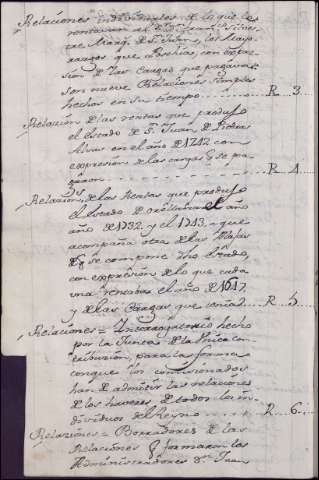 Relaciones individuales de lo que le
rentavan al Exmo. Sr. Franco. Silves-
tre Marqs. de Sn. Juan, los Mayo-
razgos que posehia, con expre-
sion de las cargas que pagava
son nueve Relaciones simples
hechas en su tiempo R. 3.
Relazion de las rentas que produjo
el Estado de S. Juan de Piedras
Alvas en el año de 1742 con
expresion de las cargas q. se pa-
garon R. 4.
Relazion, de las Rentas que produjo
el Estado de Orellana el año
año de 1732, y el 1743, a que
acompaña otra de las Alajas
de q. se compone dho Estado,
con expresion de lo que cada
una rentaba el año de 1617,
y de las Cargas que tenia R. 5.
Relaciones = Interrogatorio hecho
por la Junta de la Unica con-
tribuzion, para la forma
conque los comisionados
han de admitir las relaciones
de los haveres de todos los in-
dividuos del Reyno R. 6.
Relaziones = Borradores de las
Relaciones q. formaron los
Administradores Dn. Juan